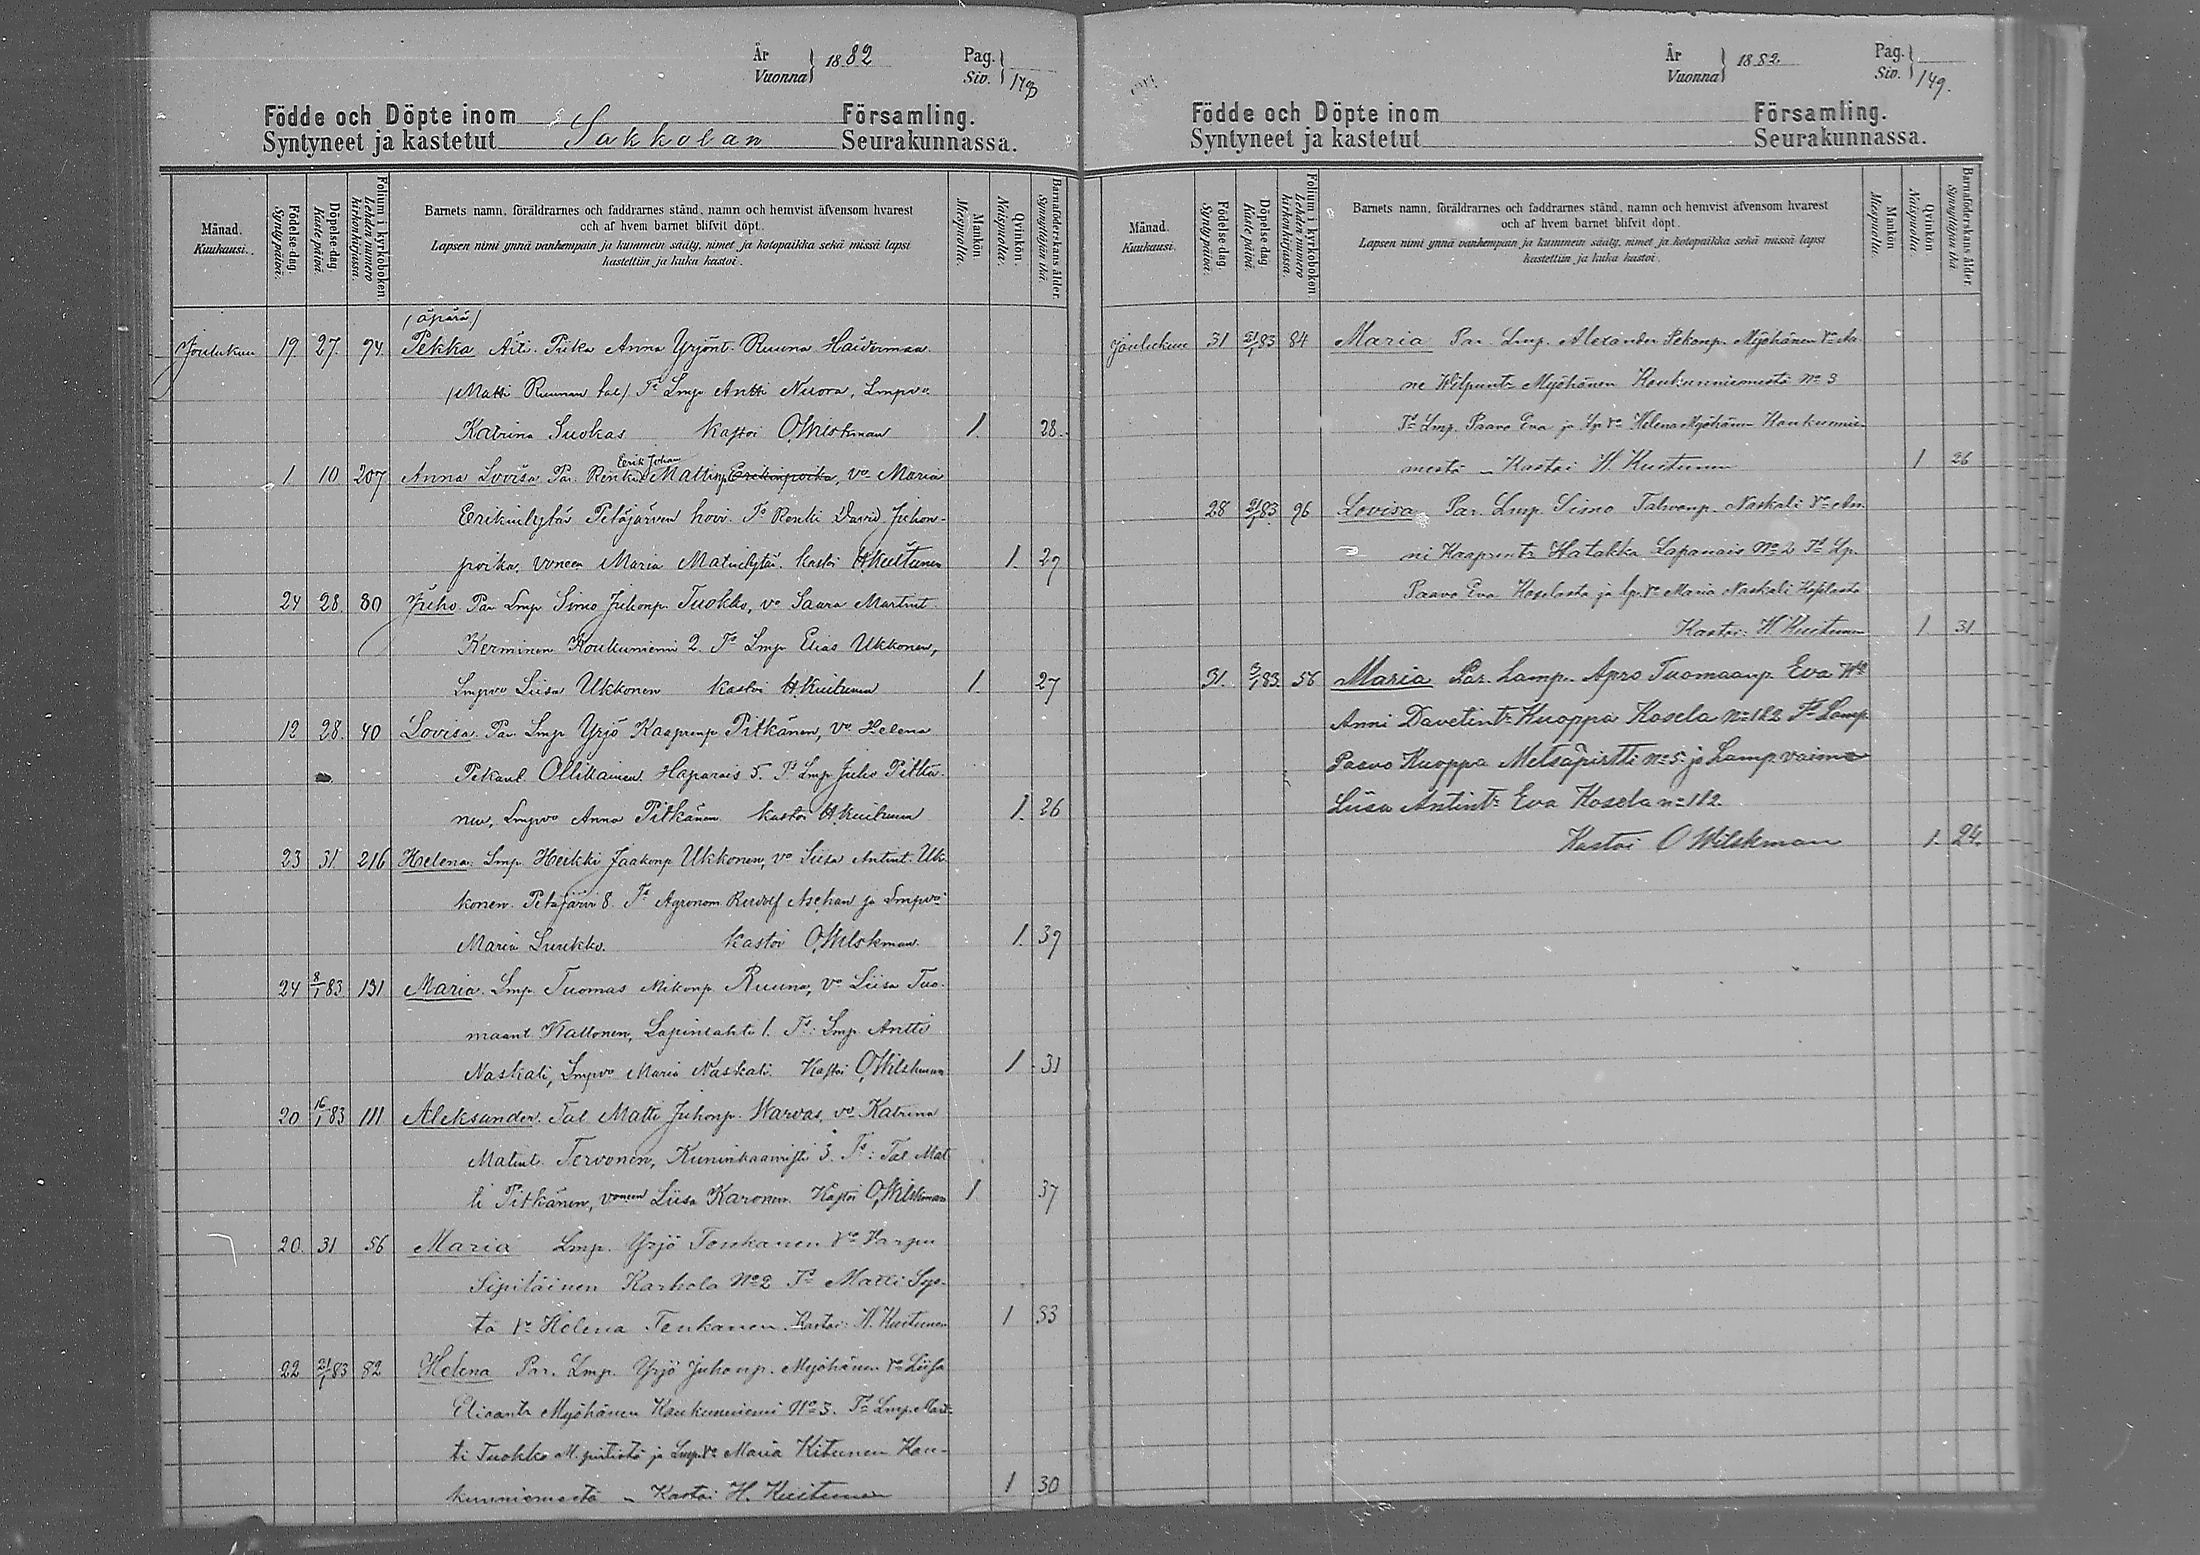 År
Vuonna } 1882
Pag.
Siv. } 148
Födde och Döpte inom Församling.
Syntyneet ja kastetut Sakkolan Seurakunnassa.
Månad.
Kuukausi.
Födelse-dag.
Syntypäivä.
Döpelse-dag.
Kastepäivä.
Folium i kyrkoboken
Lehden numero
kirkonkirjassa.
Barnets namn, föräldrarnes och faddrarnes stånd, namn och hemvist äfvensom hvarest
och af hvem barnet blifvit döpt.
Lapsen nimi ynnä vanhempain ja kummein sääty, nimet ja kotopaikka sekä missä lapsi
kastettiin ja kuka kastoi.
Mankön
Miespuolia.
Qvinkön.
Naispuolia.
Barnaföderskans ålder.
Synnyttäjän ikä.
(äpärä)
Joulukuu 19 27. 94. Pekka Äiti. Piika Anna Yrjönt. Ruuna Haitermaa.
(Matti Ruunan tal) Ts Lmp Antti Nisora, Lmpvo
Katrina Suokas Kastoi O,Wilskman 1. 28.
Erik Johan
1 10 207 Anna Lovisa Par. Renki Mattinp. Erikinpoika, vo Maria
Erikintytär Petäjärven hovi. Ts Renki David Juhon-
poika, voneen Maria Matintytär. Kastoi H Kuitunen 1. 29
24 28 80 Juho. Par Lmp Simo Juhonp. Tuokko, vo Saara Martint.
Kerminen Koukuniemi 2. Ts Lmp Elias Ukkonen,
Lmpvo Liisa Ukkonen Kastoi H Kuitunen 1. 27
12 28. 40 Lovisa. Par Lmp Yrjö Kaapronp Pitkänen, vo Helena
Pekant. Ollikainen Haparais 5. Ts Lmp Juho Pitkä-
nen, Lmpvo Anna Pitkänen Kastoi H Kuitunen 1. 26
23 31. 216 Helena. Lmp. Heikki Jaakonp Ukkonen, vo Liisa Antint. Uk-
konen. Petäjärvi 8. Ts Agronom Rudolf Aschan ja Lmpvo
Maria Luukko. Kastoi O,Wilskman. 1. 39
24 8/1 83 131 Maria. Lmp. Tuomas Mikonp. Ruuna, vo Liisa Tuo-
maant. Kattonen, Lapinlahti 1. Ts: Lmp Antti
Naskali, Lmpvo Maria Naskali. Kastoi O,Wilskman 1 33
20 16/1 83 111 Aleksander. Tal Matti Juhonp. Warvas, vo Katrina
Matint. Tervonen, Kuninkaanristi 3. Ts: Tal Mat-
ti Pitkänen, voneen Liisa Karonen. Kastoi O,Wilskman 1 37
20. 31 56 Maria Lmp. Yrjö Tenkanen vo Varpu
Sipiläinen Karhola No 2 Ts Matti Sip-
tä vo Helena Tenkanen. Kastoi: H. Kuitunen 1 33
22 21/1 83 82 Helena Par. Lmp. Yrjö Juhonp. Myöhänen vo Liisa
Eliaantr Myöhänen Koukunniemi No 3. Ts Lmp. Mart-
ti Tuokko M. pirtistä ja Lmp. vo Maria Kitunen Kou-
kunniemestä – Kastoi H. Kuitunen 1 30
År
Vuonna } 1882
Pag.
Siv. } 149.
Födde och Döpte inom Församling.
Syntyneet ja kastetut Seurakunnassa.
Månad.
Kuukausi.
Födelse-dag.
Syntypäivä.
Döpelse-dag.
Kastepäivä.
Folium i kyrkoboken
Lehden numero
kirkonkirjassa.
Barnets namn, föräldrarnes och faddrarnes stånd, namn och hemvist äfvensom hvarest
och af hvem barnet blifvit döpt.
Lapsen nimi ynnä vanhempain ja kummein sääty, nimet ja kotopaikka sekä missä lapsi
kastettiin ja kuka kastoi.
Mankön
Miespuolia.
Qvinkön
Naispuolia.
Barnaföderskans ålder.
Synnyttäjän ikä
Joulukuu 31 21/1 83 84 Maria Par. Lmp. Alexander Pekonp. Myöhänen vo An-
ne Wilpuntr Myöhänen Koukunniemestä No 3
Ts Lmp. Paavo Eva ja Lp. vo Helena Myöhänen Koukunnie-
mestä – Kastoi H. Kuitunen 1 26
28 21/1 83. 96 Lovisa Par. Lmp. Simo Tahvonp. Naskali vo An-
ni Kaaprontr Hatakka Lapanais No 2 Ts Lp.
Paavo Eva Koselasta ja Lp. vo Maria Naskali Koselasta
Kastoi: H Kuitunen 1 31.
31. 3/1 83. 56 Maria Par. Lamp. Apro Tuomaanp. Eva Wo
Anni Davetintr Kuoppa Kosela No 1&2 Ts Lamp.
Paavo Kuoppa Metsäpirtti No 5. ja Lamp. vaimo
Liisa Antintr Eva Kosela No 1&2.
Kastoi O Wilskman 1. 24.